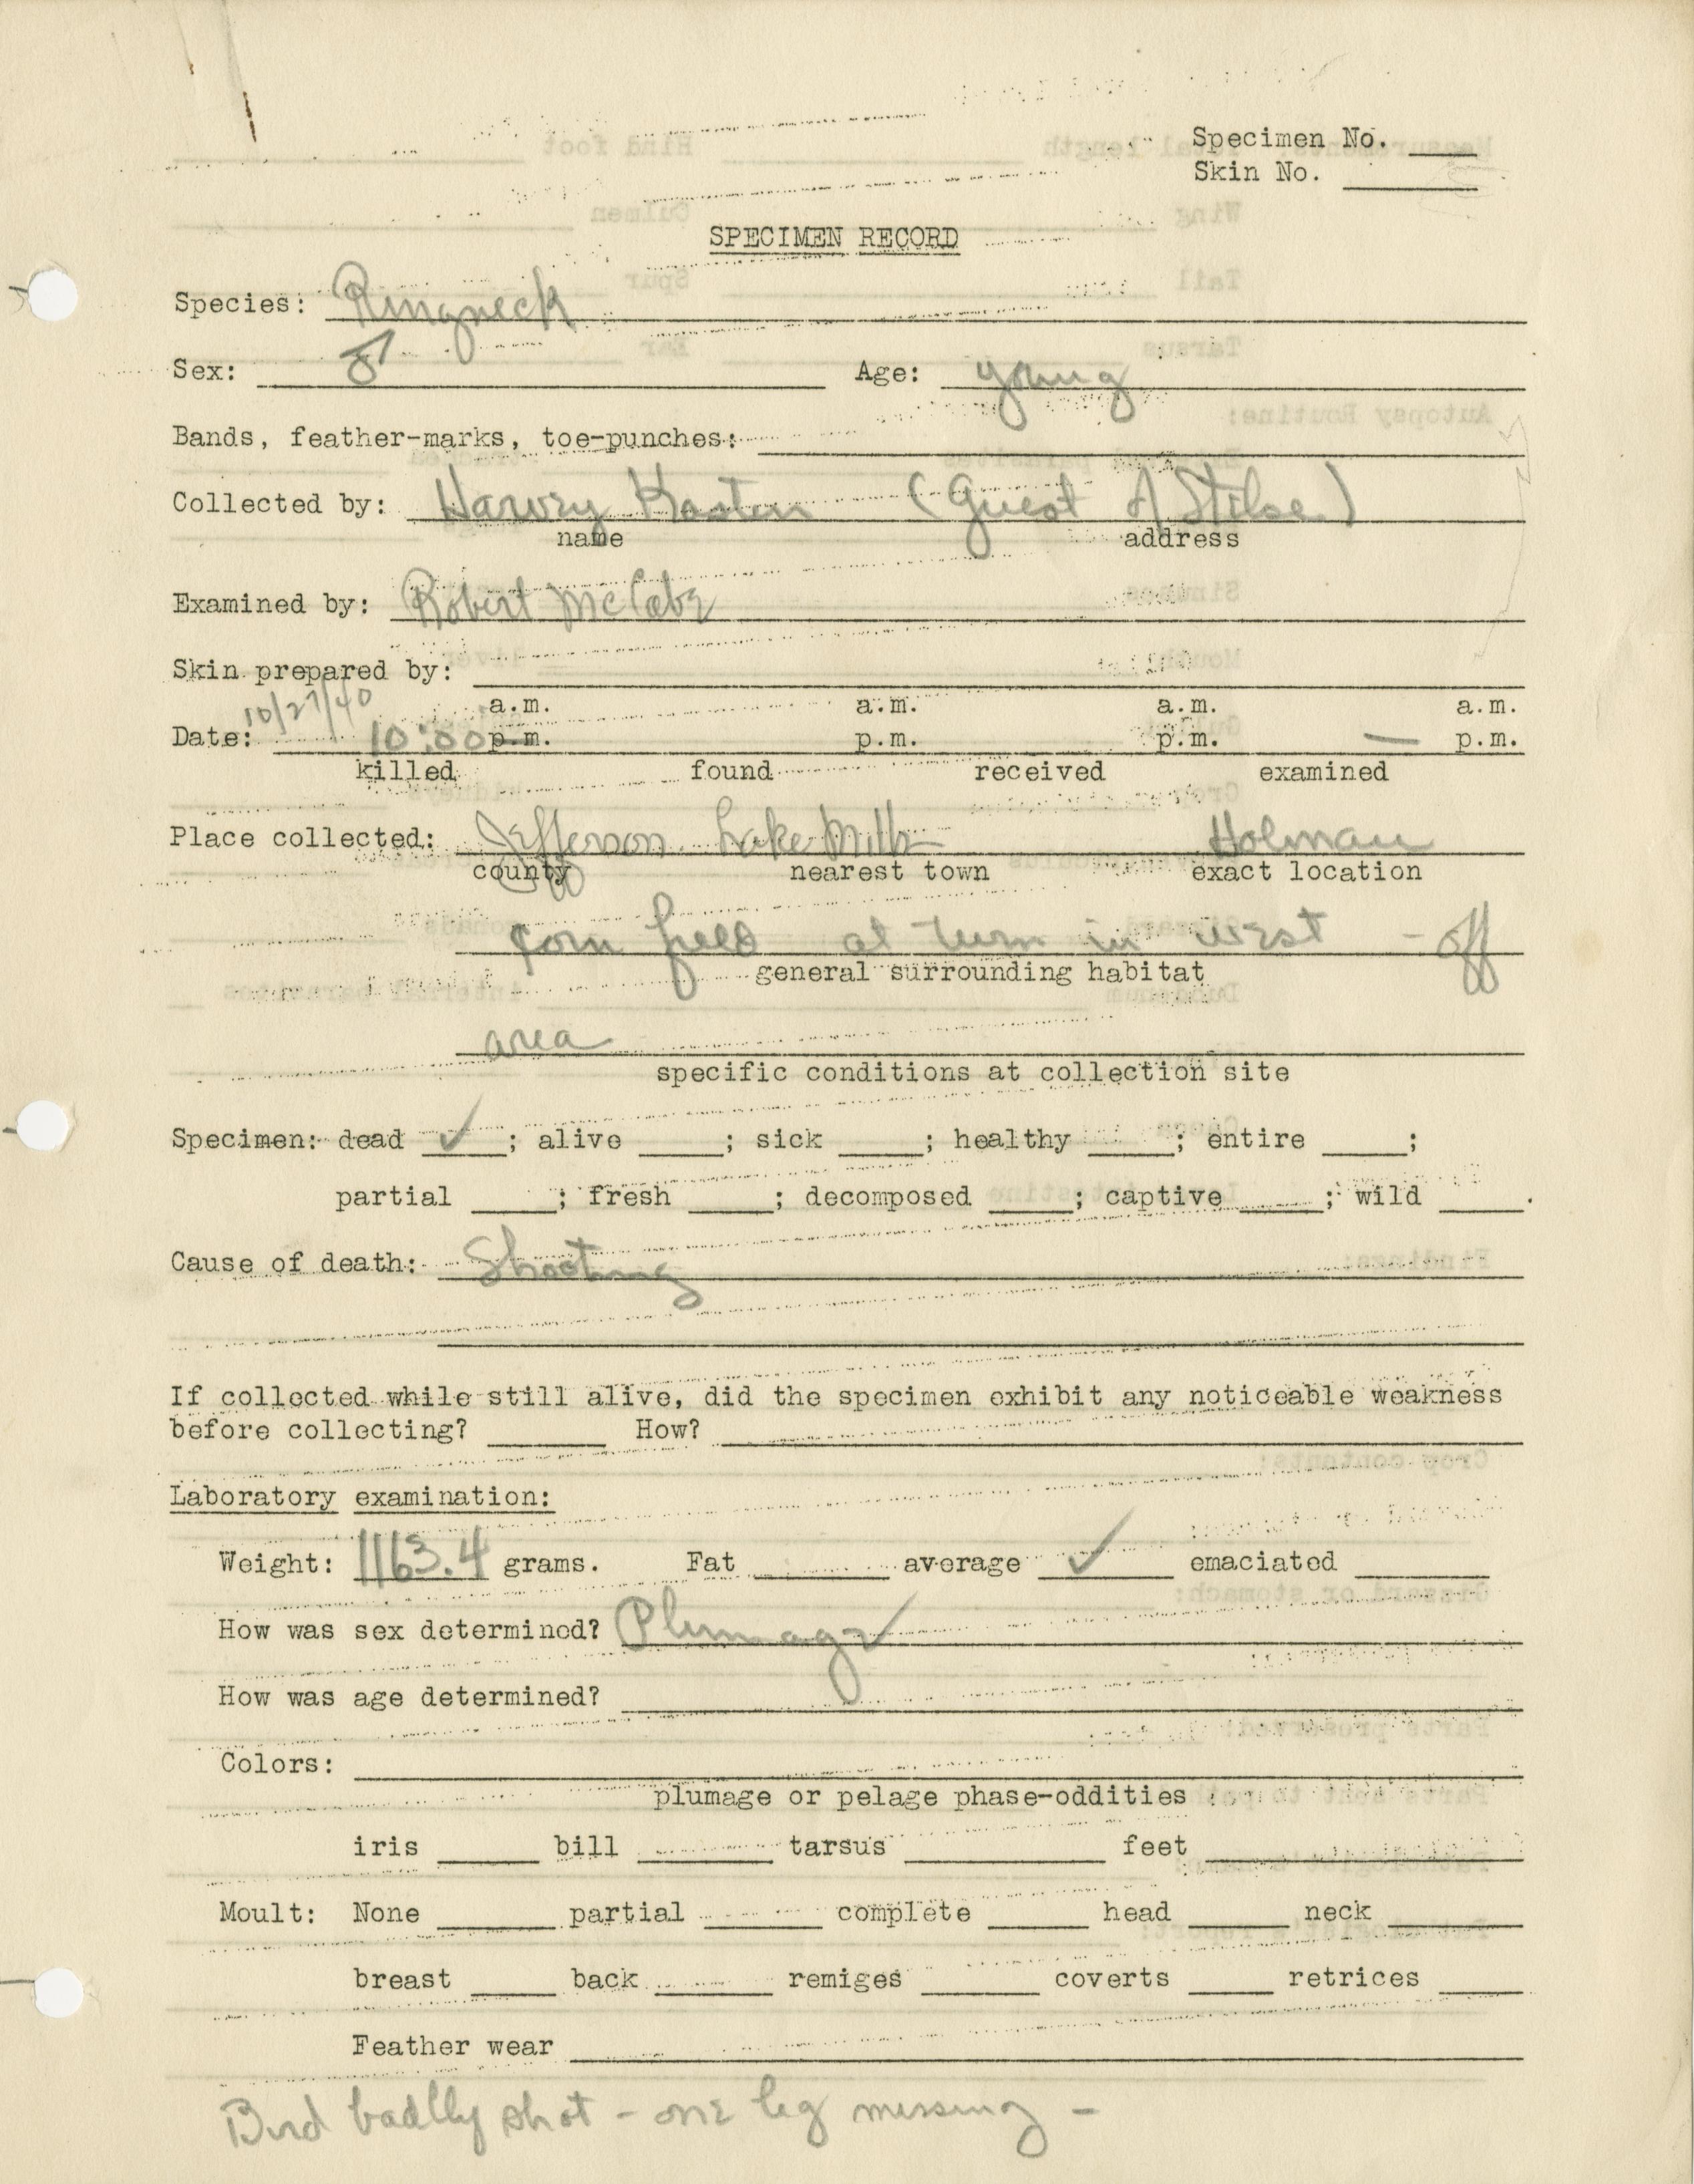 Specimen No. ____
Skin No. ____
SPECIMEN RECORD
Species: Ringneck
Sex: ♂ Age: young
Bands, feather-marks, toe-punches:
Collected by: Harvey Kasten (Guest of Stilse.)
name address
Examined by: Robert McCabe
Skin prepared by:
10/27/40
a.m. a.m. a.m. a.m.
Date: 10:00 p.m. p.m. p.m. — p.m.
killed found received examined
Place collected: Jefferson Lake Mills Holman
county nearest town exact location
corn field at turn in west - off
general surrounding habitat
area
specific conditions at collection site
Specimen: dead ✓; alive ____; sick ____; healthy ____; entire ____;
partial ____; fresh ____; decomposed ____; captive ____; wild ____.
Cause of death: Shooting
If collected while still alive, did the specimen exhibit any noticeable weakness
before collecting? ____ How? ____
Laboratory examination:
Weight: 1163.4 grams. Fat ____ average ✓ emaciated ____
How was sex determined? Plumage ✓
How was age determined?
Colors:
plumage or pelage phase-oddities
iris ____ bill ____ tarsus ____ feet ____
Moult: None ____ partial ____ complete ____ head ____ neck ____
breast ____ back ____ remiges ____ coverts ____ retrices ____
Feather wear
Bird badlly shot - one leg missing -